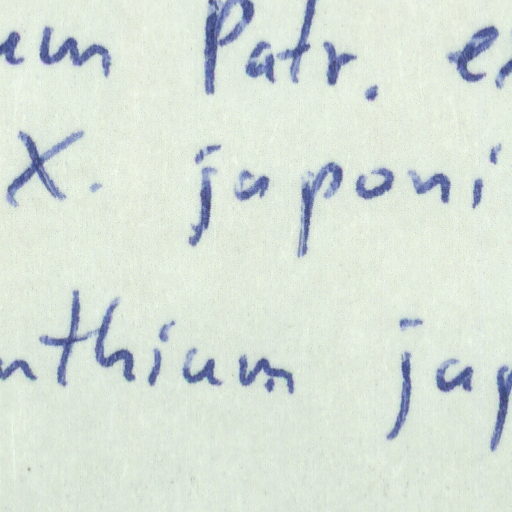 um Patr. e
X. japoni
nthium jap